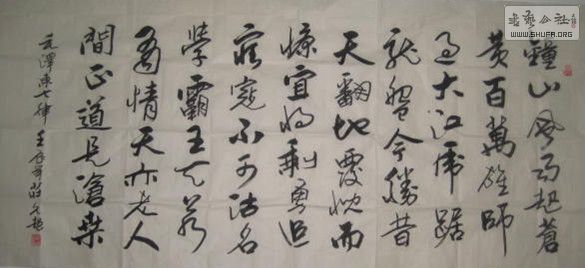 鐘山風雨起蒼
黃百萬雄師
過大江虎踞
龍盤今勝昔
天翻地覆慨而
慷宜將剩勇追
窮寇不可沽名
學霸王天若
有情天亦老人
間正道是滄桑
毛澤東七律
書法公社
WWW.SHUFA.ORG